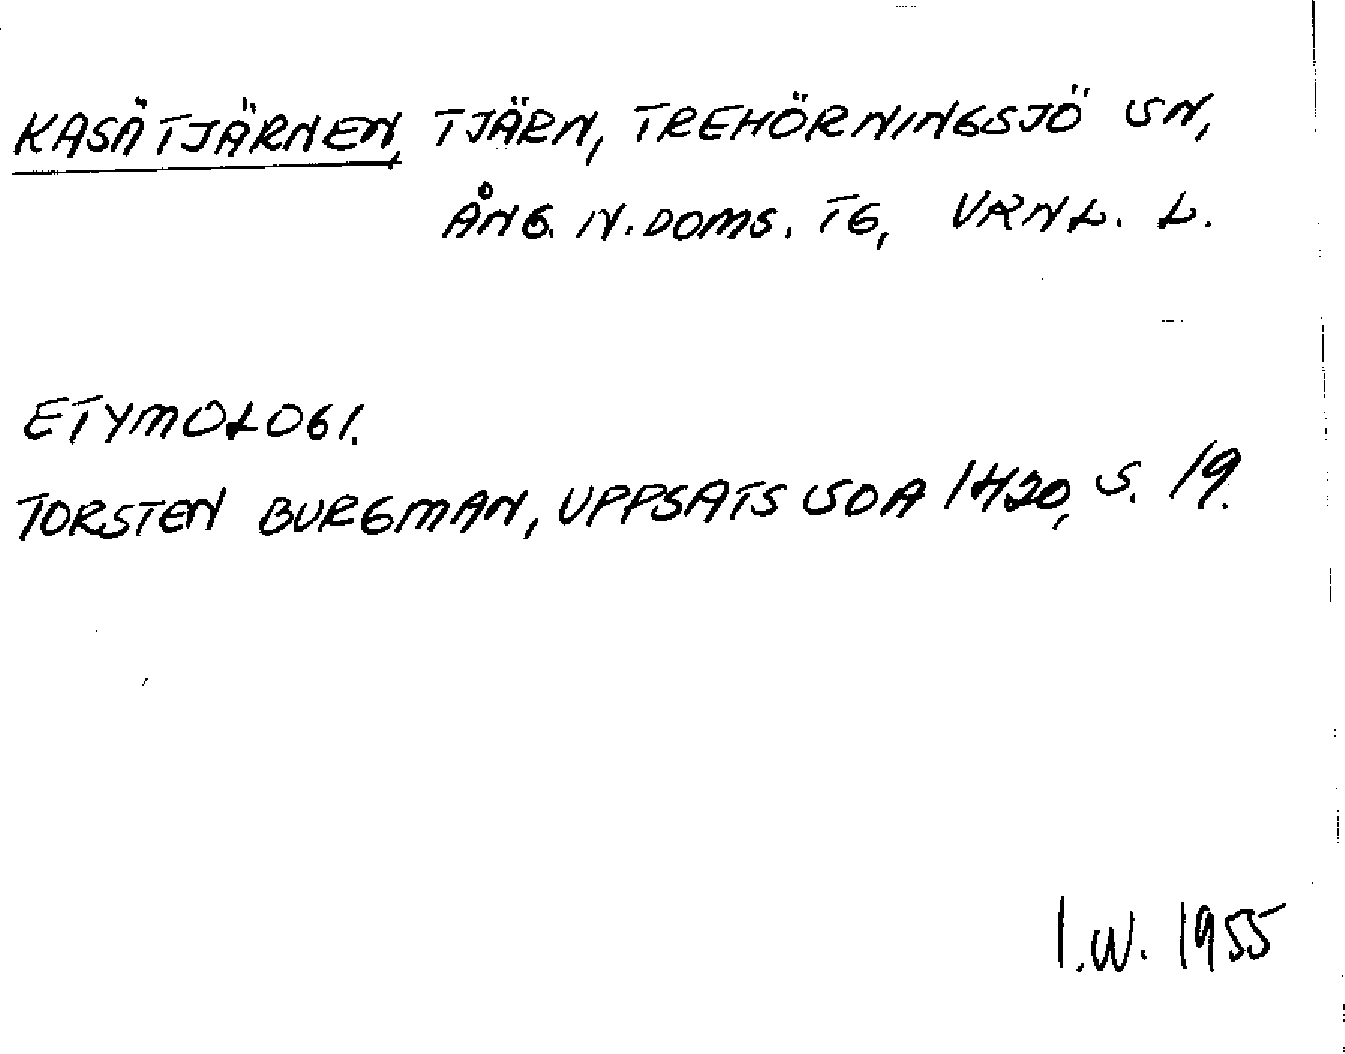 KASÄTJÄRNEN, TJÄRN, TREHÖRNINGSJÖ SN,
ÅNG. N. DOMS. TG, VRNL. L.
ETYMOLOGI.
TORSTEN BURGMAN, UPPSATS SOA 1420, S. 19.
I.W. 1955